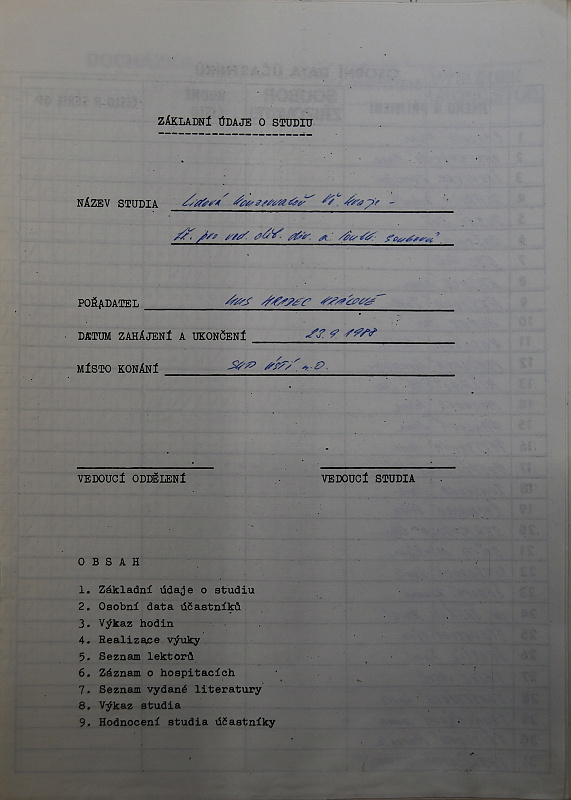 ZÁKLADNÍ ÚDAJE O STUDIU
NÁZEV STUDIA Lidová konzervatoř Vč. kraje -
tř. pro ved. div. a loutk. souborů
POŘADATEL KKS HRADEC KRÁLOVÉ
DATUM ZAHÁJENÍ A UKONČENÍ 23.9.1988
MÍSTO KONÁNÍ ÚSTÍ n.O.
VEDOUCÍ ODDĚLENÍ VEDOUCÍ STUDIA
O B S A H
1. Základní údaje o studiu
2. Osobní data účastníků
3. Výkaz hodin
4. Realizace výuky
5. Seznam lektorů
6. Záznam o hospitacích
7. Seznam vydané literatury
8. Výkaz studia
9. Hodnocení studia účastníky